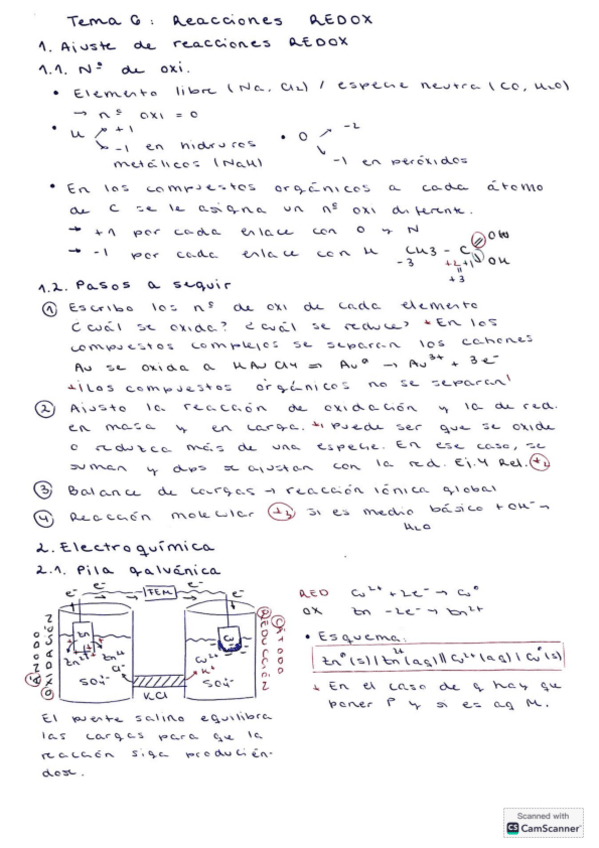 Tema 6: Reacciones REDOX
1. Ajuste de reacciones REDOX
1.1. Nº de oxi.
• Elemento libre (Na, Cl2) / especie neutra (CO, H2O)
→ nº oxi = 0
• H +1
-1 en hidruros metálicos (NaH)
• O -2
-1 en peróxidos
• En los compuestos orgánicos a cada átomo
de C se le asigna un nº oxi diferente.
→ +1 por cada enlace con O y N
→ -1 por cada enlace con H
CH3 - C
OH
-3 +2 +1
+3
1.2. Pasos a seguir
① Escribo los nº de oxi de cada elemento
¿cuál se oxida? ¿cuál se reduce? * En los
compuestos complejos se separan los cationes
Au se oxida a HAuCl4 ⇒ Au⁰ → Au³⁺ + 3e⁻
*¡Los compuestos orgánicos no se separan!
② Ajusto la reacción de oxidación y la de red.
en masa y en carga. *1 puede ser que se oxide
o reduzca más de una especie. En ese caso, se
suman y dps se ajustan con la red. Ej. 4 Rel. *2
③ Balance de cargas → reacción iónica global
④ Reacción molecular *3 si es medio básico + OH⁻ →
H2O
2. Electroquímica
2.1. Pila galvánica
e⁻ e⁻ FEM e⁻
ÁNODO
OXIDACIÓN
Zn
Zn²⁺ Zn²⁺
Cl⁻
SO4²⁻
KCl
Cu
Cu²⁺
K⁺
SO4²⁻
REDUCCIÓN
CÁTODO
RED Cu²⁺ + 2e⁻ → Cu⁰
OX Zn - 2e⁻ → Zn²⁺
• Esquema:
Zn⁰(s) | Zn²⁺(aq) || Cu²⁺(aq) | Cu⁰(s)
* En el caso de g hay que
poner P y si es aq M.
El puente salino equilibra
las cargas para que la
reacción siga producién-
dose.
Scanned with
CS CamScanner